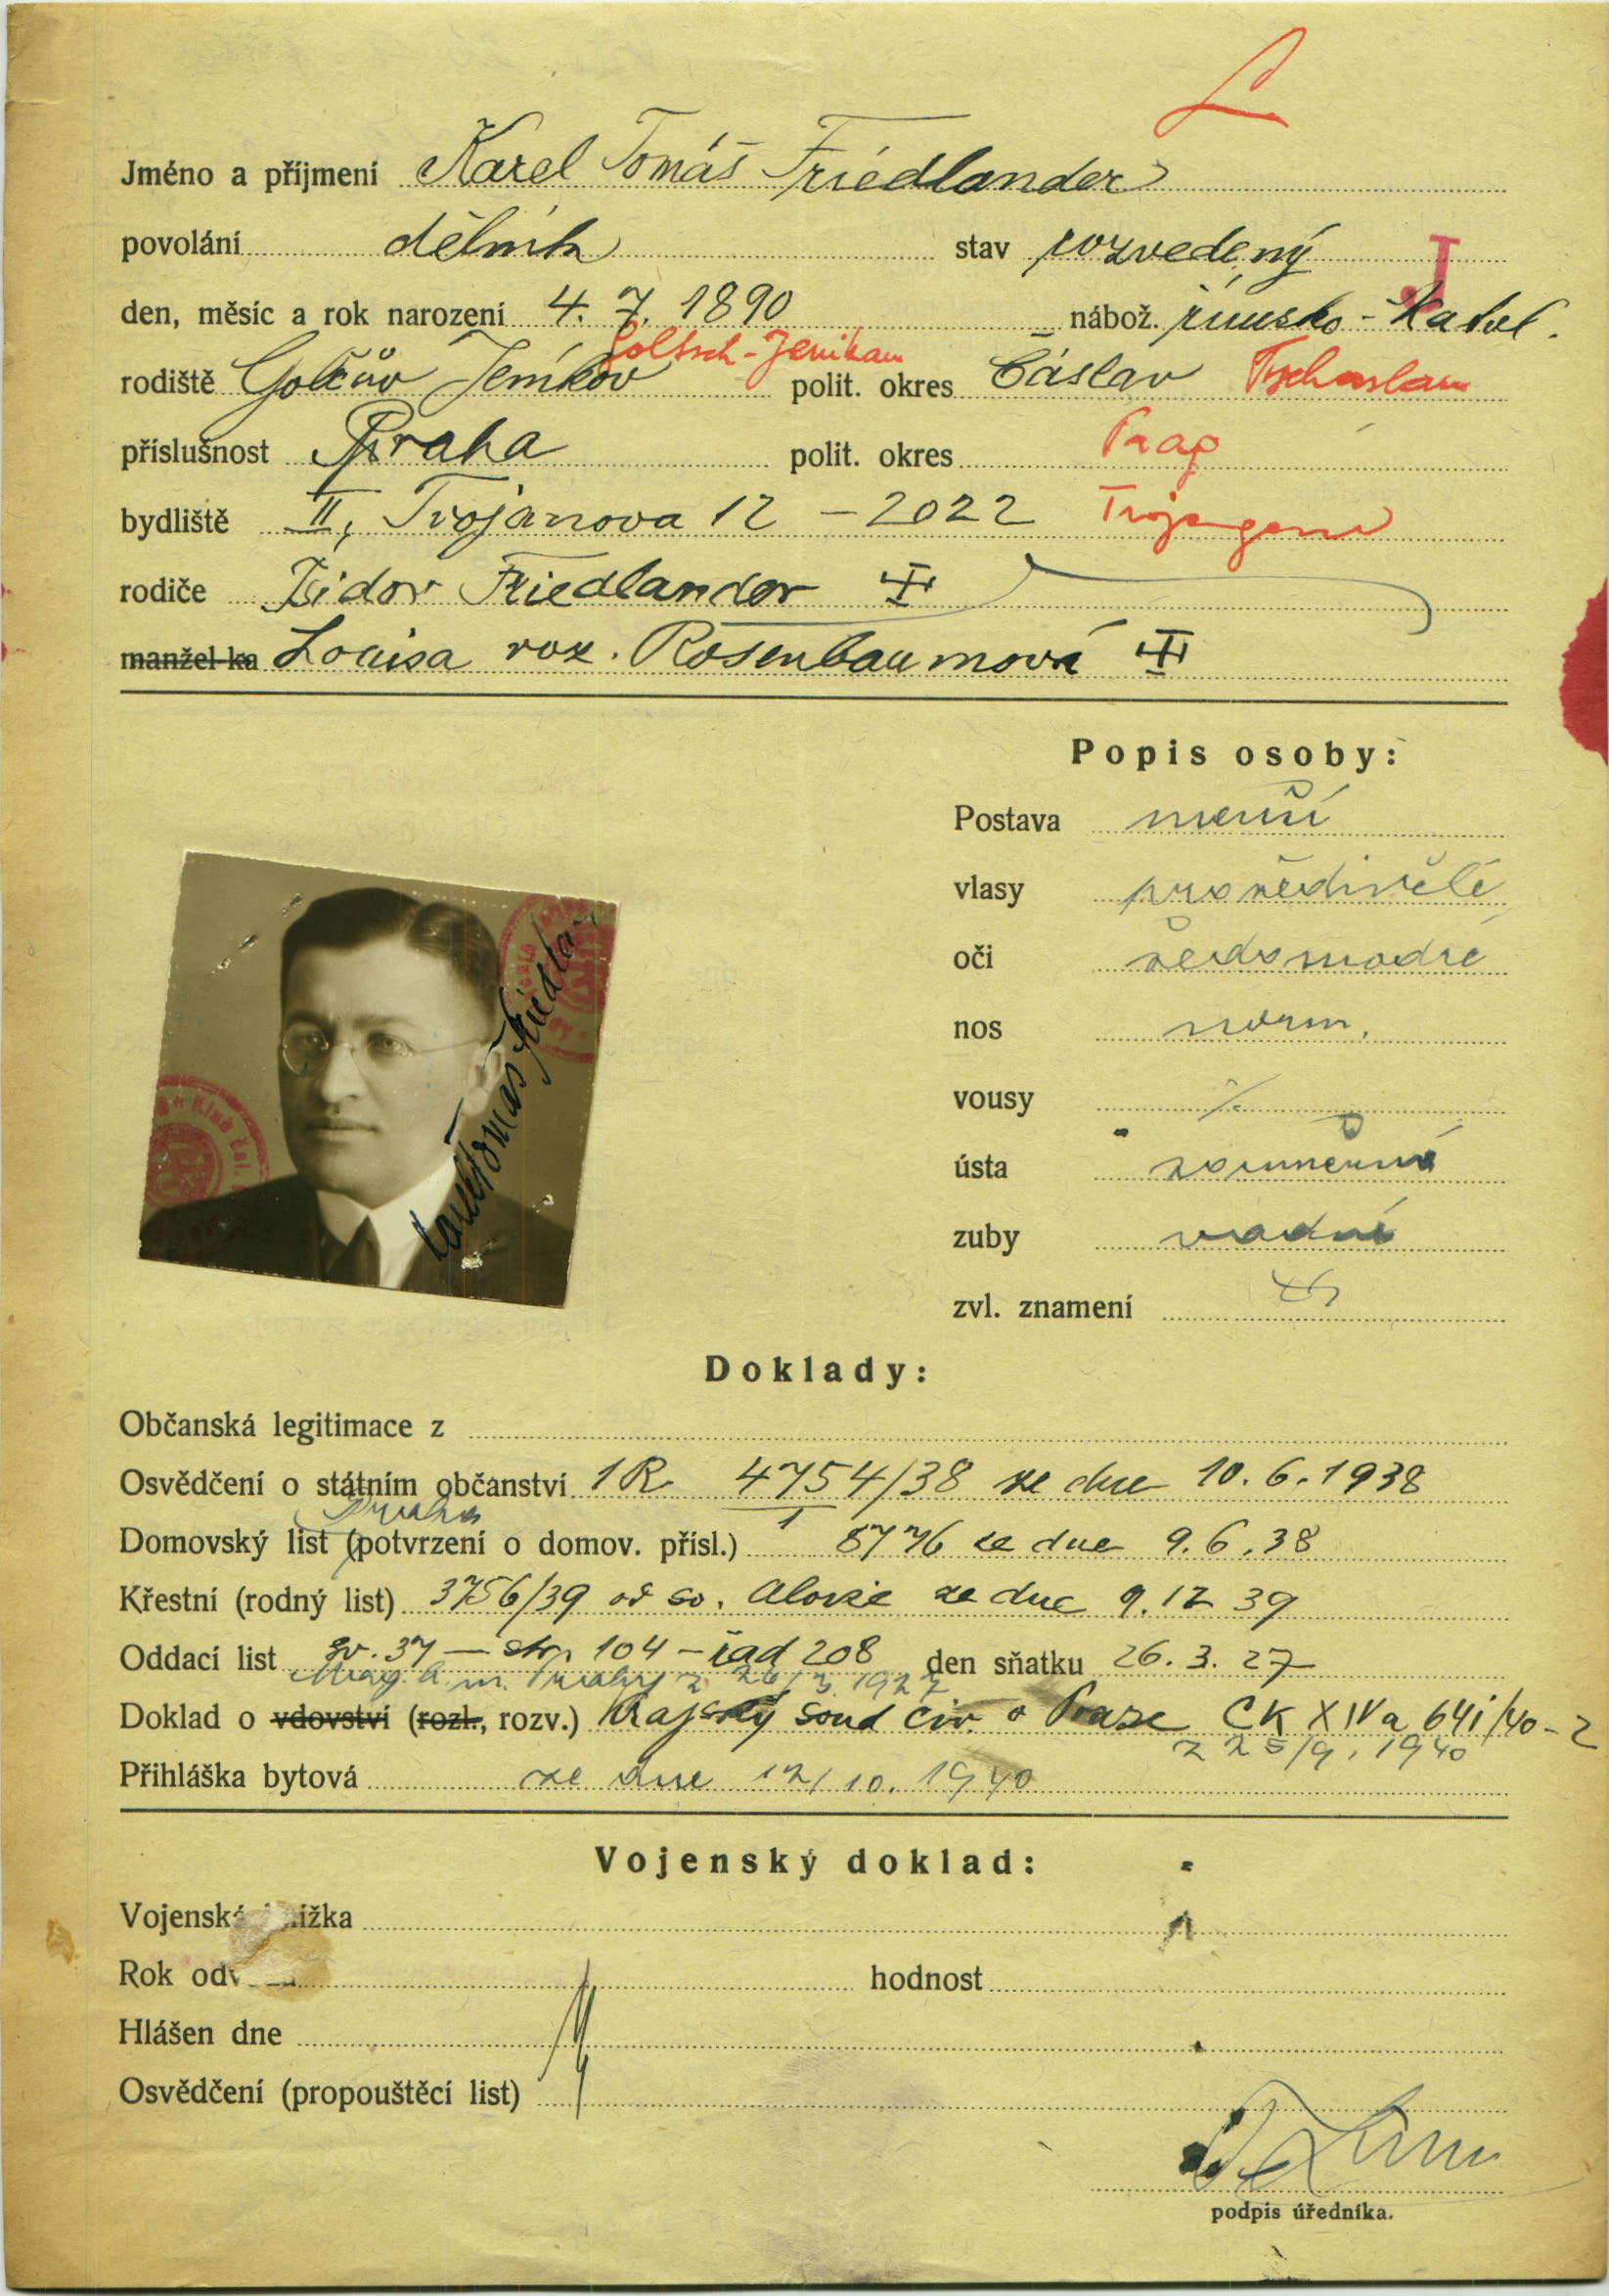 L
Jméno a příjmení Karel Tomáš Friedlander
povolání dělník stav rozvedený
J
den, měsíc a rok narození 4. 7. 1890 nábož. římsko-katol.
Goltsch-Jenikau
rodiště Golčův Jeníkov polit. okres Čáslav Tschaslau
příslušnost Praha polit. okres Prag
bydliště II, Trojanova 12 – 2022 Trojangasse
rodiče Isidor Friedlander
manžel-ka Louisa roz. Rosenbaumová
Popis osoby:
Postava menší
vlasy prošedivělé
oči šedomodré
nos norm.
vousy ⁒
ústa souměrná
zuby vadné
zvl. znamení
Karel Tomáš Friedlan
Doklady:
Občanská legitimace z
Osvědčení o státním občanství 1R 4754/38 ze dne 10.6.1938
Praha 1
Domovský list (potvrzení o domov. přísl.) 8776 ze dne 9.6.38
Křestní (rodný list) 3756/39 od sv. Aloise ze dne 9.12 39
Oddací list sv. 37 – str. 104 – řad 208 den sňatku 26. 3. 27
Mag. h. m. Prahy z 26/3. 1927
Doklad o vdovství (rozl., rozv.) Krajský soud civ. v Praze CK XIVa 641/40-2
z 25/9. 1940
Přihláška bytová ze dne 12/10. 1940
Vojenský doklad:
Vojenská knížka
Rok odv hodnost
Hlášen dne
Osvědčení (propouštěcí list)
podpis úředníka.